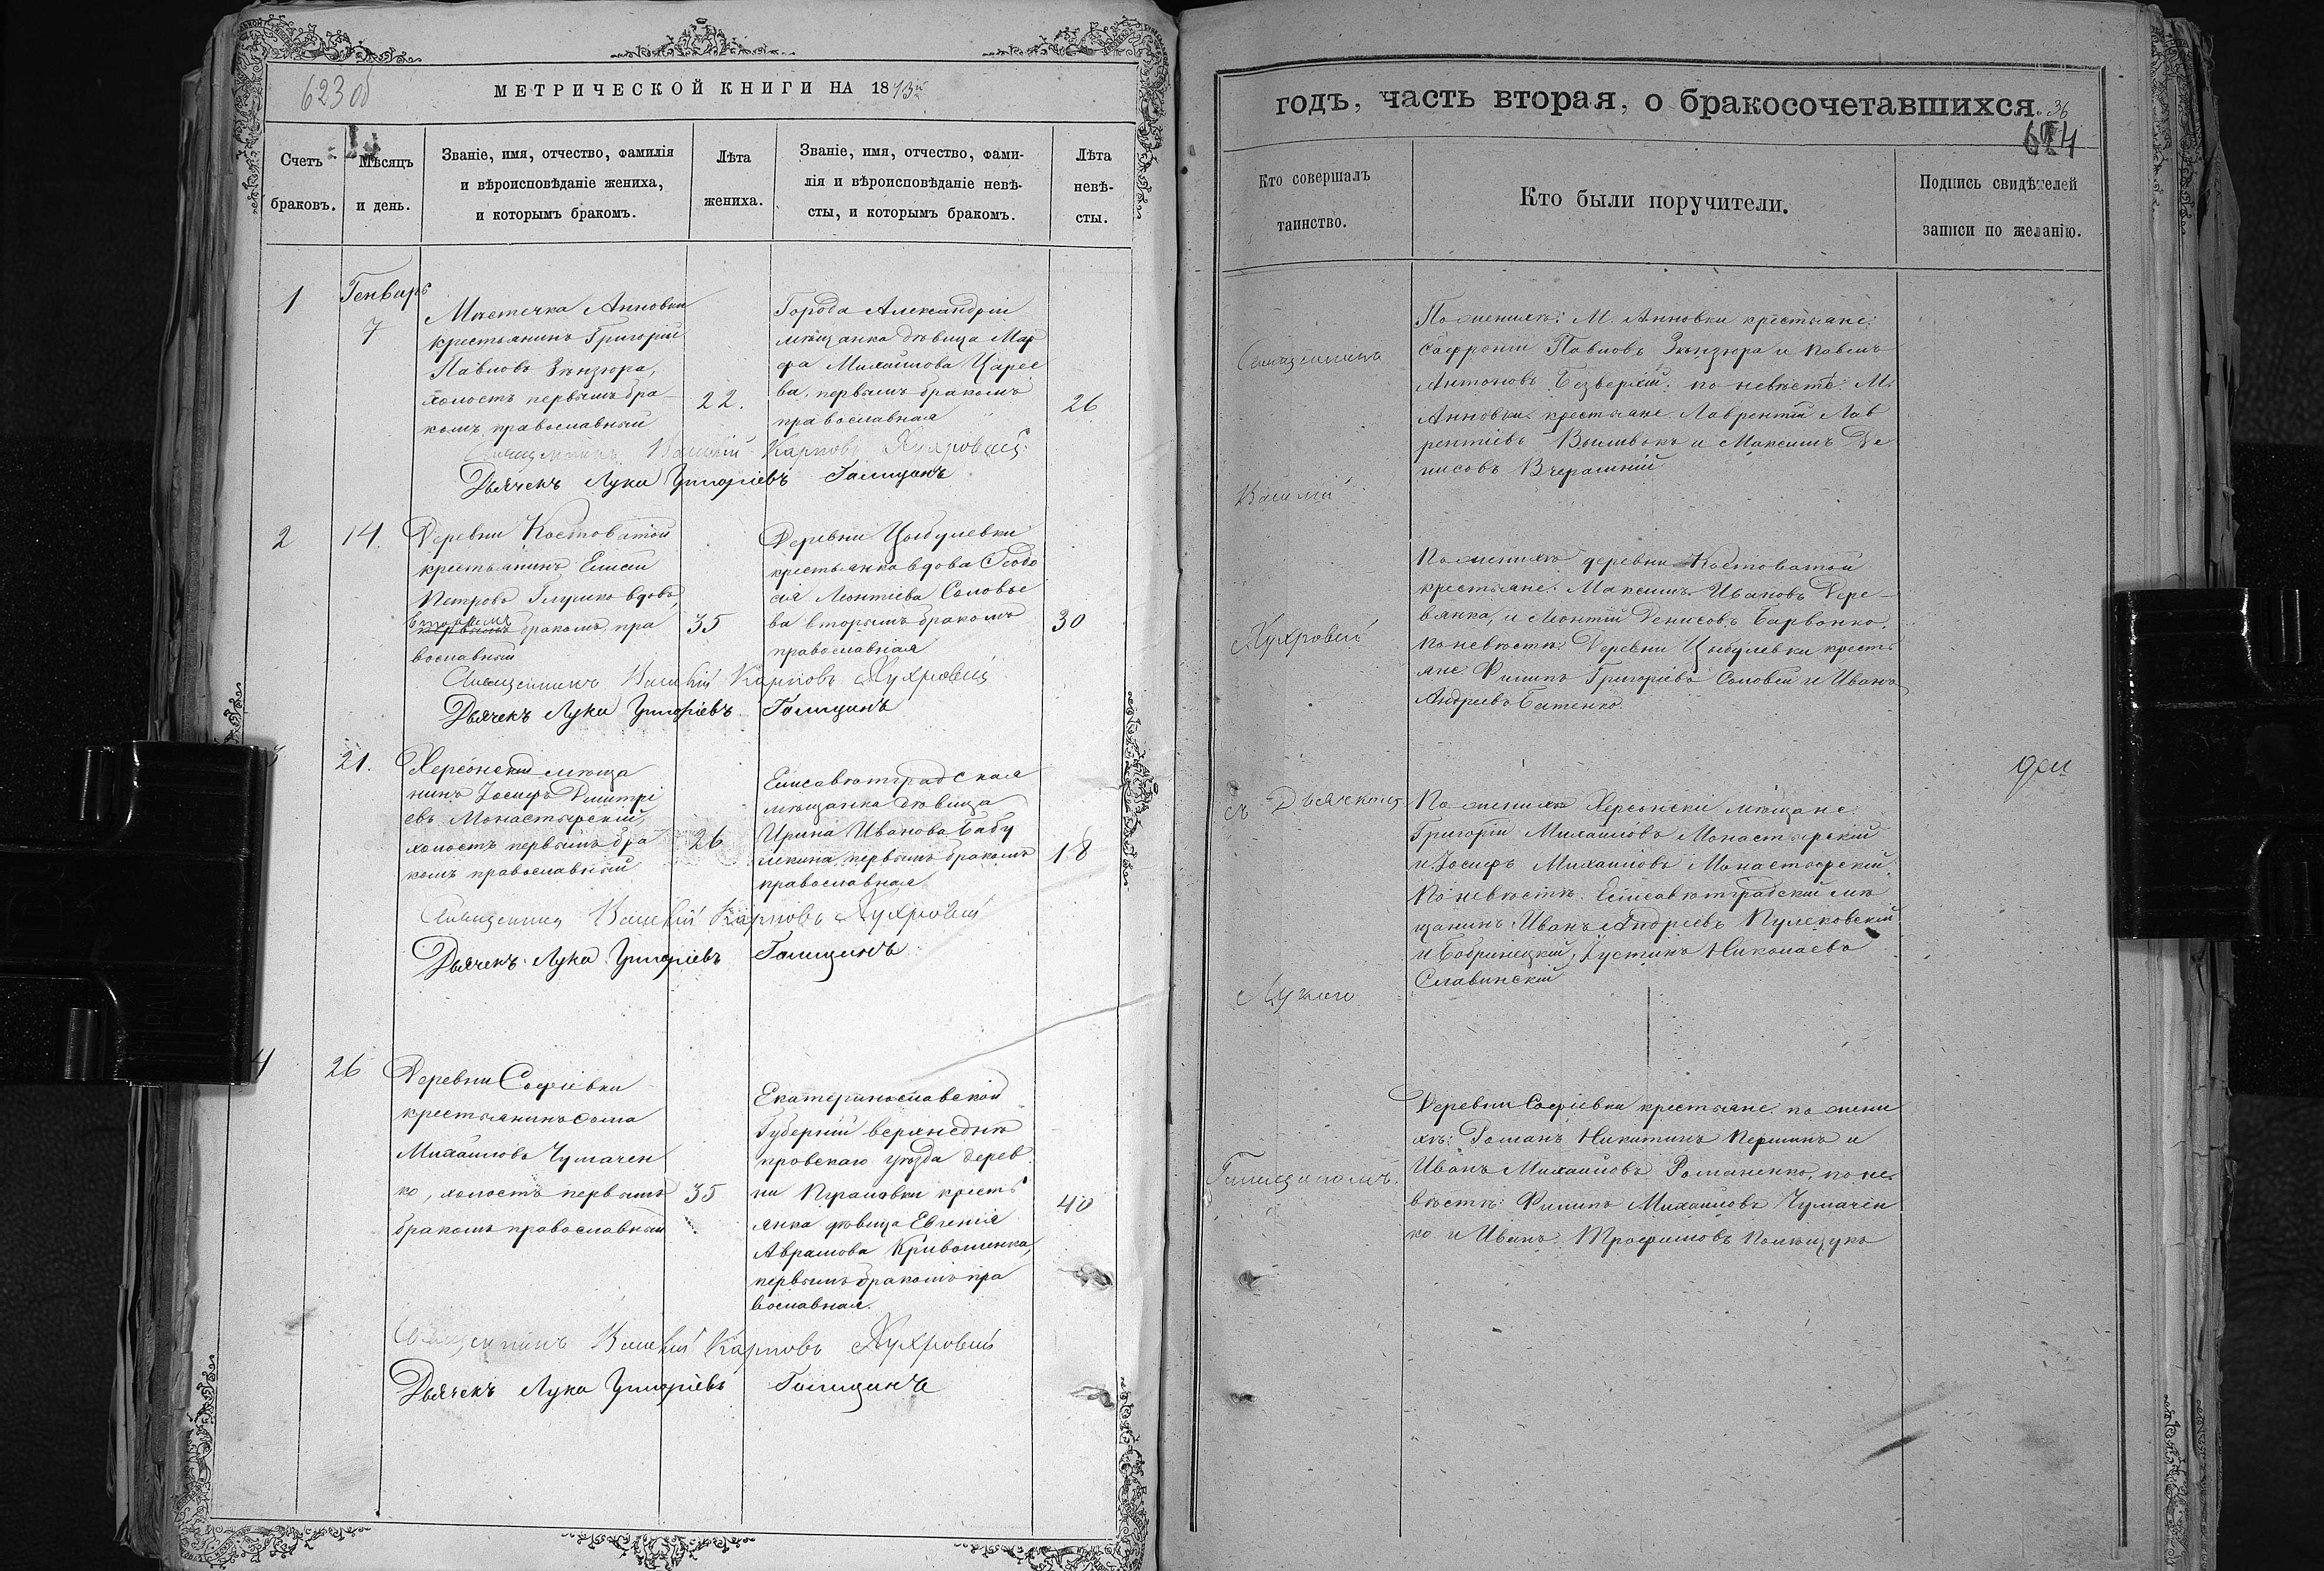 623 об
МЕТРИЧЕСКОЙ КНИГИ НА 1873й
Счетъ браковъ.
Мѣсяцъ и день.
Званіе, имя, отчество, фамилія
и вѣроисповѣданіе жениха,
и которымъ бракомъ.
Лѣта жениха.
Званіе, имя, отчество, фами-
лія и вѣроисповѣданіе невѣ-
сты, и которымъ бракомъ.
Лѣта
невѣ-
сты.
1
Генварь
7
Мѣстечка Анновки
крестьянинъ Григорій
Павловъ
холостъ первымъ бра-
комъ православный
22.
Города Александріи
мѣщанка дѣвица Мар
фа Михайлова Царее
ва, первымъ бракомъ
православная
26
Священникъ Василій Карповъ Кухровскій
Дьячекъ Лука Григоріевъ Галицинъ
2
14.
Деревни Костоватой
крестьянинъ Елисей
Петровъ Глушко вдовъ,
вторымъ
первымъ бракомъ, пра
вославный
35
Деревни Цыбулевки
крестьянка вдова Ѳеодо
сія Леонтіева Соловье
ва вторымъ бракомъ
православная
30
Священникъ Василій Карповъ Кухровскій
Дьячекъ Лука Григоріевъ Галицинъ
3
21.
Херсонскій мѣща
нинъ Іосифъ Дмитрі
евъ Монастырскій,
холостъ первымъ бра
комъ православный
26
Елисаветградская
мѣщанка дѣвица
Ирина Иванова Бабу
шкина, первымъ бракомъ
православная
18
Священникъ Василій Карповъ Кухровскій
Дьячекъ Лука Григоріевъ Галицинъ
4
26
Деревни Софіевки
крестьянинъ Ѳома
Михайловъ Чумачен
ко, холостъ первымъ
бракомъ православный
35
Екатеринославской
Губерніи верхнеднѣ
провскаго уѣзда дерев
ни крестъ
янка дѣвица Евгенія
Аврамова Кривошенка,
первымъ бракомъ пра
вославная.
40
Священникъ Василій Карповъ Кухровскій
Дьячекъ Лука Григоріевъ Галицинъ
годъ, часть вторая, о бракосочетавшихся.
36
624
Кто совершалъ
таинство.
Кто были поручители.
Подпись свидѣтелей
записи по желанію.
Священникъ
Василій
Кухровскій
съ Дьячкомъ
Лукою
Галициномъ.
По женихѣ: М. Анновки крестьяне:
Сафроній Павловъ и Павелъ
Антоновъ Безверхій. по невѣстѣ: М.
Анновки крестьяне Лаврентій Лав
рентіевъ и Максимъ Де
нисовъ Вчерашній
По женихѣ деревни Костоватой
крестьяне: Максимъ Ивановъ Дере-
вянка, и Леонтій Денисовъ Барвонко.
По невѣстѣ: Деревни Цыбулевки кресть
яне: Филипъ Григоріевъ Соловей и Иванъ
Андреевъ Батенко.
По женихѣ Херсонскіе мѣщане:
Григорій Михайловъ Монастырскій
и Іосифъ Михайловъ Монастырскій.
По невѣстѣ: Елисаветградскій мѣ
щанинъ Иванъ Андреевъ Пулековскій
и Бобринецкій, Іустинъ Николаевъ
Славинскій
Деревни Софіевки крестьяне: по жени
хѣ: Романъ Никитинъ Першинъ и
Иванъ Михайловъ Романенко, по не
вѣстѣ: Филипъ Михайловъ Чумачен
ко и Иванъ Трофимовъ Полищукъ